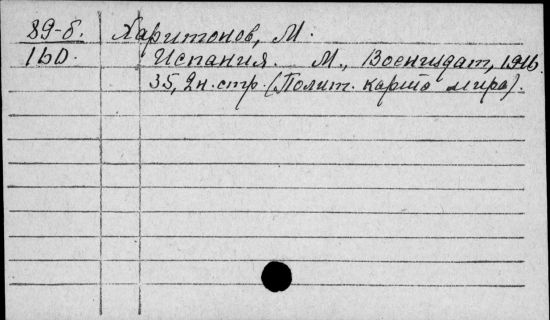 89-б. Харитонов, М.
160. Испания. М., Воениздат, 1946.
35, 2н. стр. (Полит. карта мира).